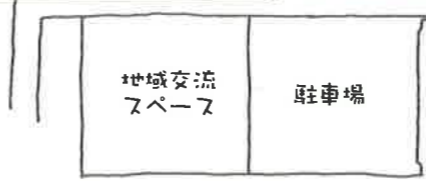 地域交流
スペース
駐車場